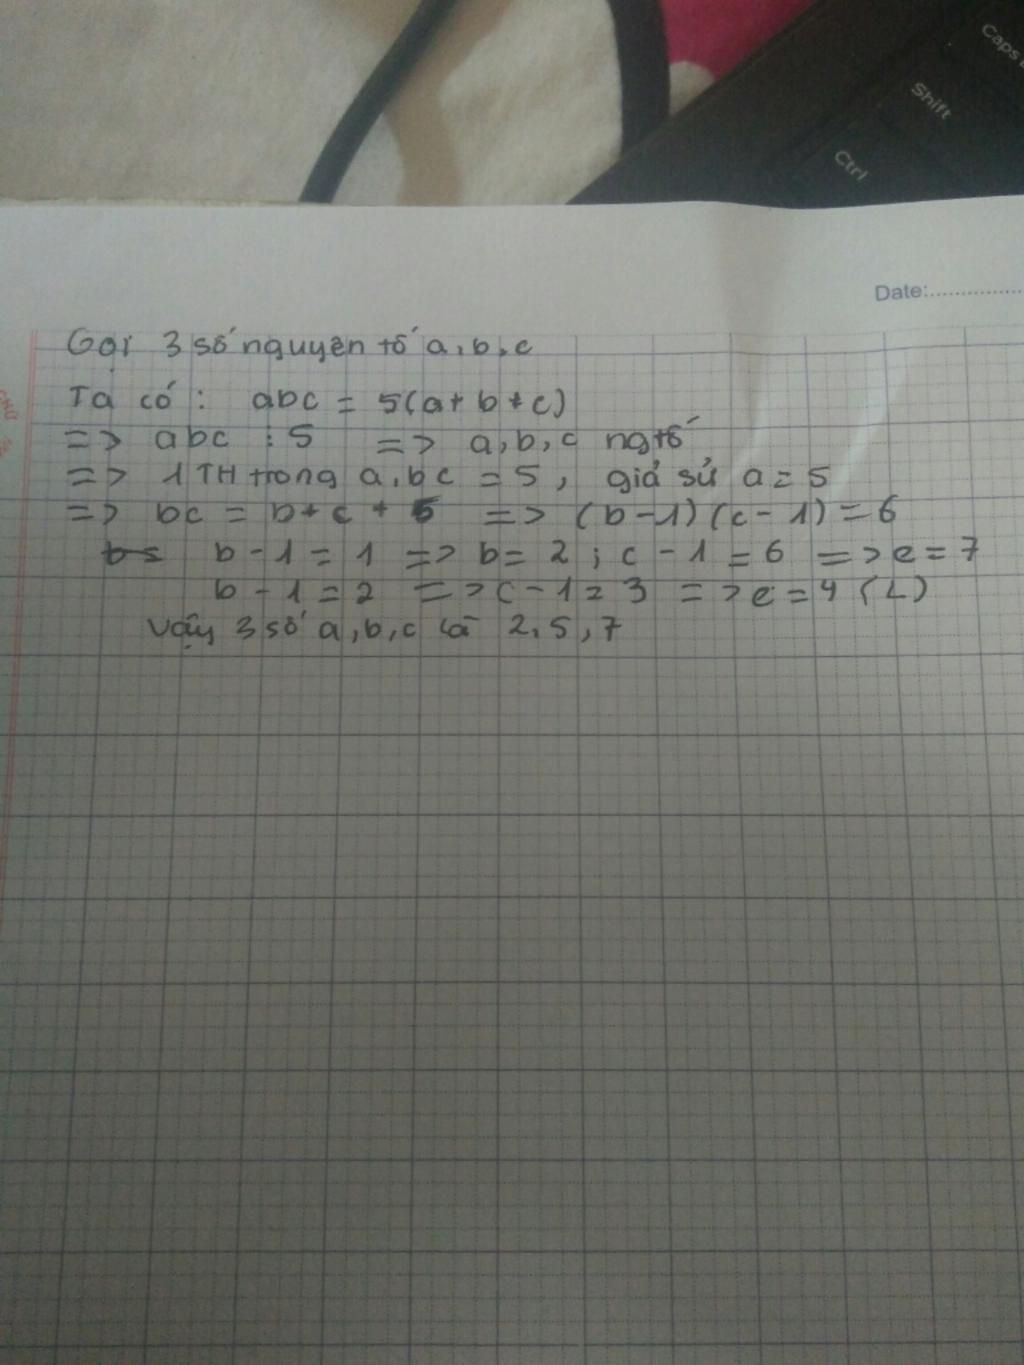 Caps
Shift
Ctrl
Date:................
Gọi 3 số nguyên tố a, b, c
Ta có : abc = 5(a+ b + c)
=> abc ⋮ 5 => a, b, c ng tố
=> 1 TH trong a, bc = 5, giả sử a = 5
=> bc = b + c + 5 => (b-1)(c-1) = 6
b - 1 = 1 => b = 2 ; c - 1 = 6 => c = 7
b - 1 = 2 => c - 1 = 3 => c = 4 (L)
Vậy 3 số a, b, c là 2, 5, 7